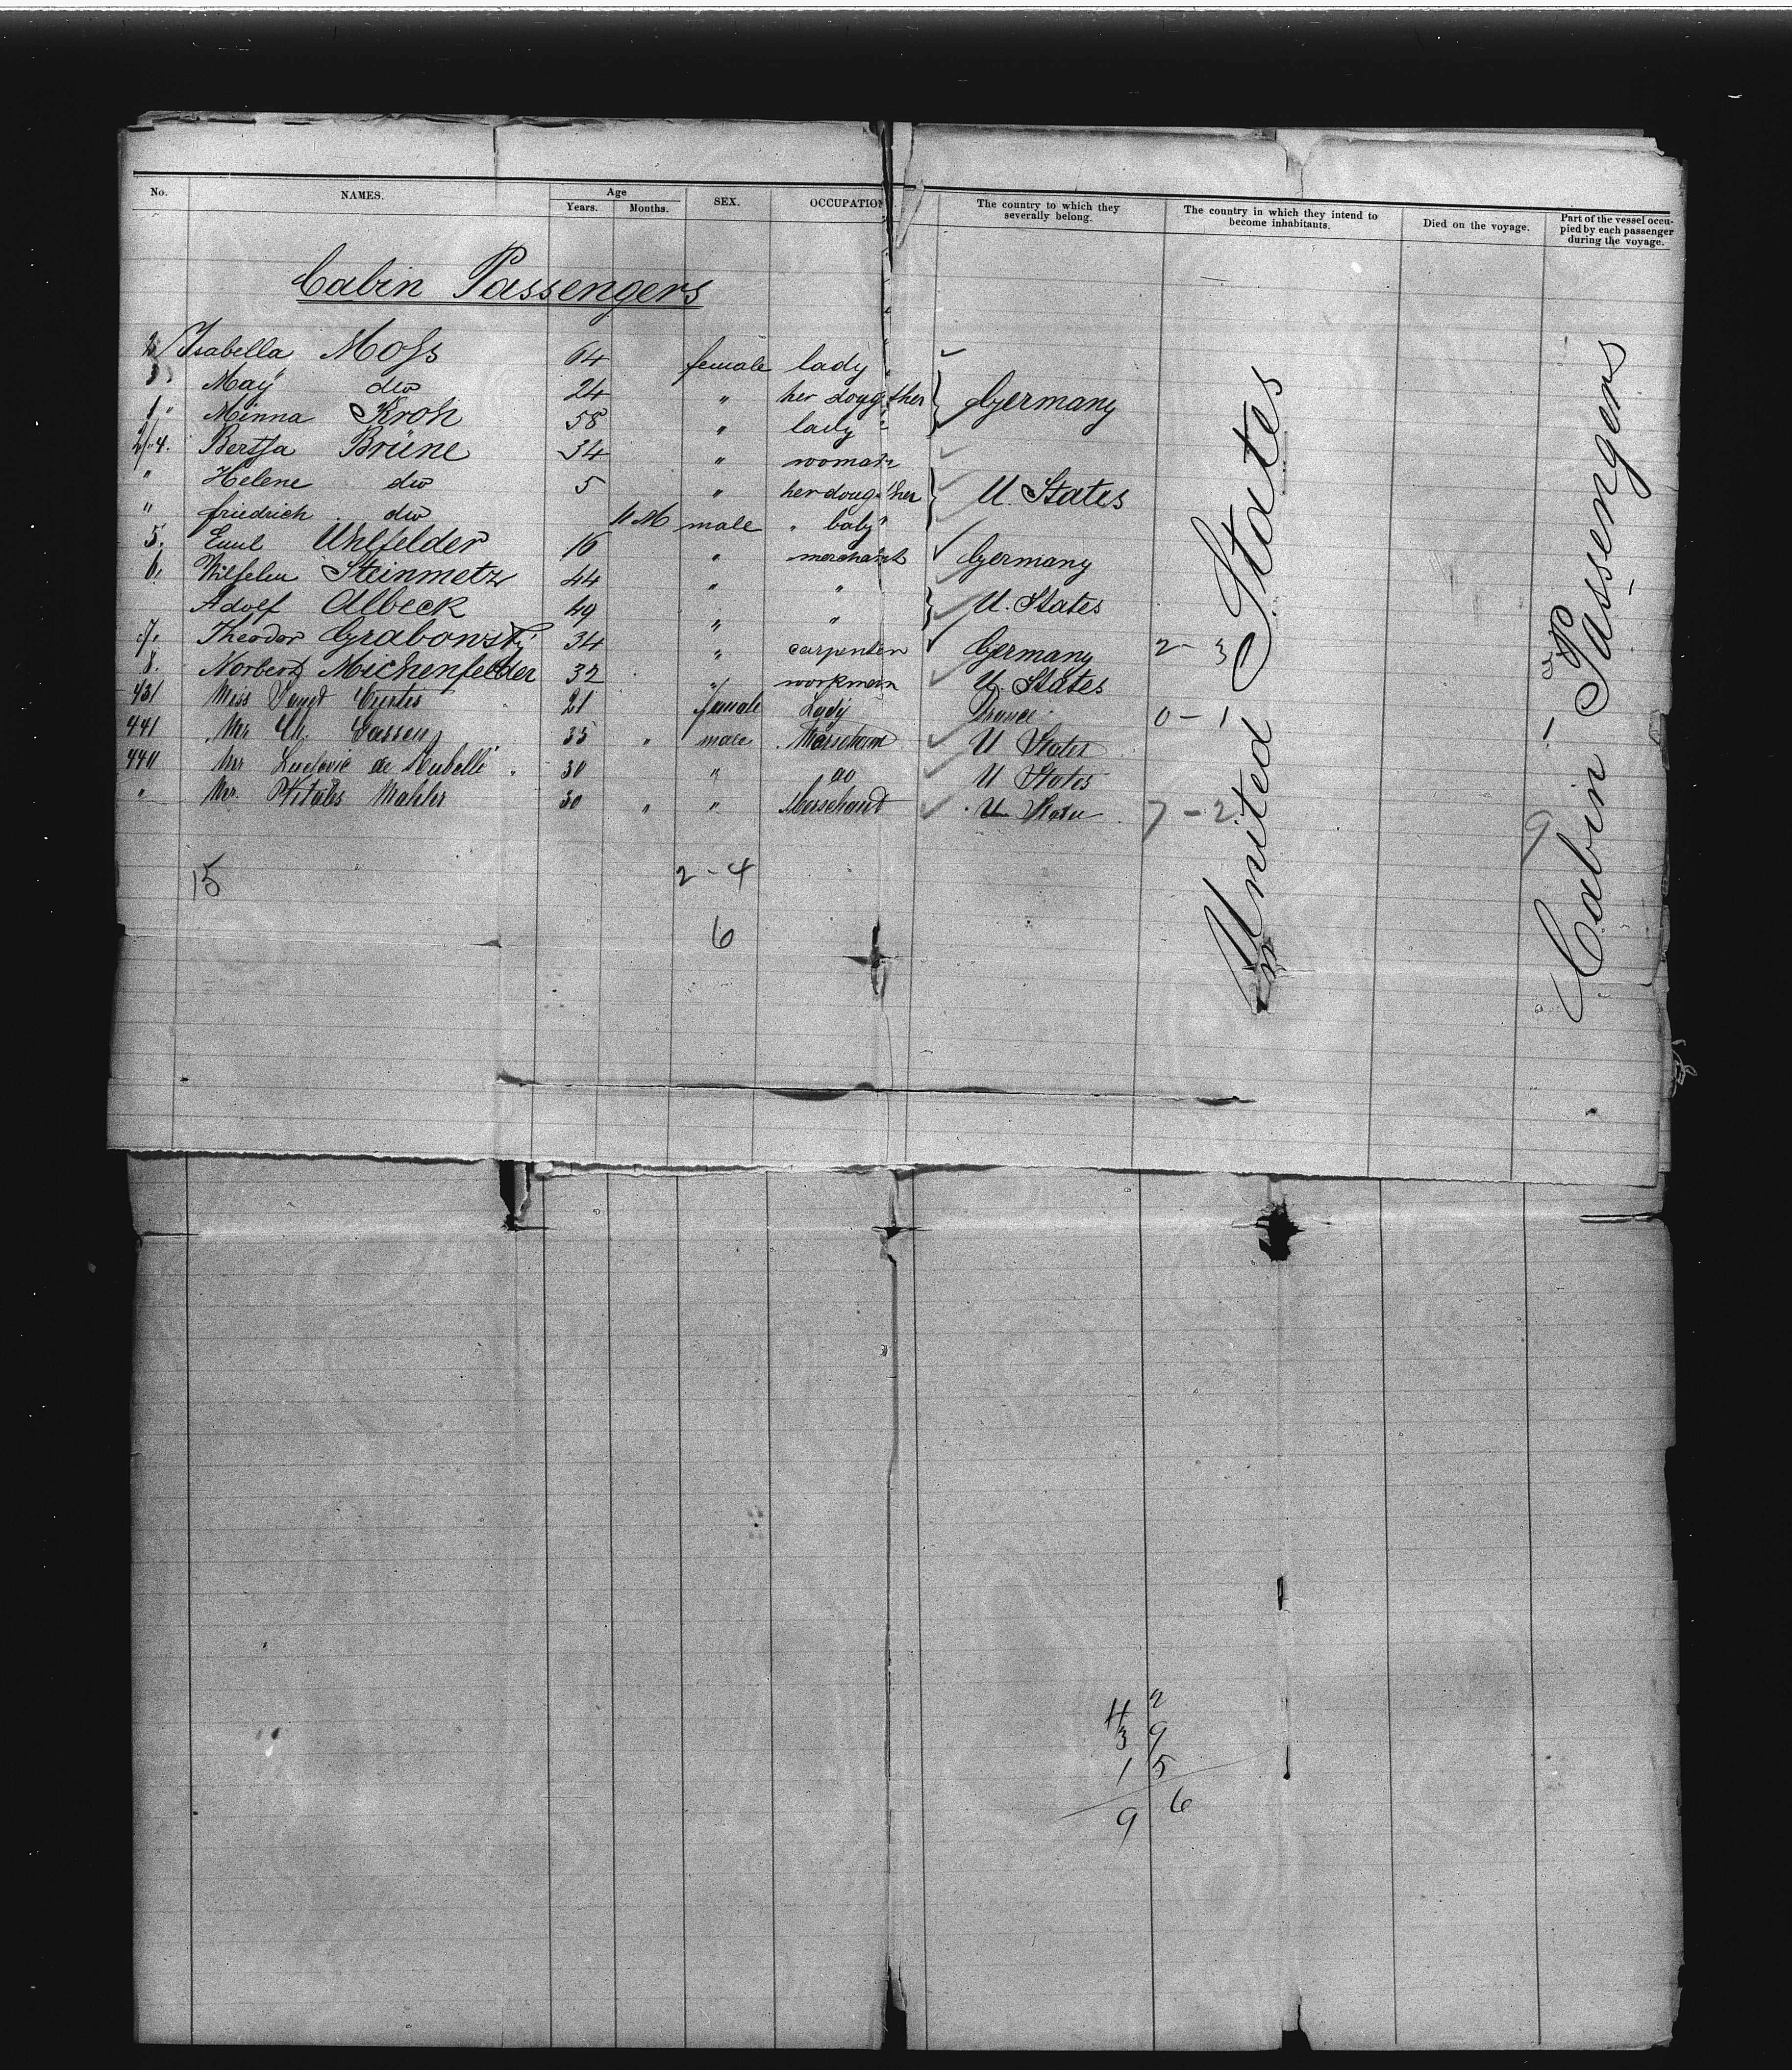 No. NAMES. Age Years. Months. SEX. OCCUPATION The country to which they severally belong. The country in which they intend to become inhabitants. Died on the voyage. Part of the vessel occupied by each passenger during the voyage.
Cabin Passengers
Isabella Moss 64 female lady
May do 24 " her doughther Germany
1 " Minna Kroh 58 " lady "
4. Bertha Brüne 34 " woman
" Helene do 5 " her doughther U. States
" friedrich do 11 M male " baby "
5. Emil Uhlfelder 16 " merchant Germany
6. Wilhelm Steinmetz 44 " "
Adolf Albeck 49 " " U. States
7. Theodor Grabowsky 34 " carpenter Germany 2 - 3
8. Norbert Michenfelder 32 " workman U. States
431 Miss Curtis 21 female Lady France 0 - 1
441 Mr Ch. 35 " male U States
440 Mr Ludovic de Rubelli 30 " do U States
" Mr. Mahler 30 " " Merschant U State 7 - 2
United States
Cabin Passengers
5
1
9
15 2 - 4
6
4 2
3 9
1 5
9 6